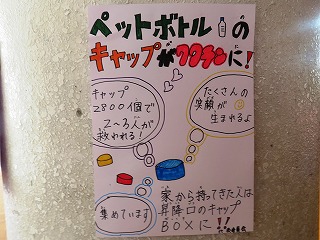 ペットボトルの
キャップがワクチンに!
キャップ
2800個で
2~3人が
救われる!
たくさんの
笑顔が
生まれるよ
集めています
家から持ってきた人は
昇降口のキャップ
BOXに!!